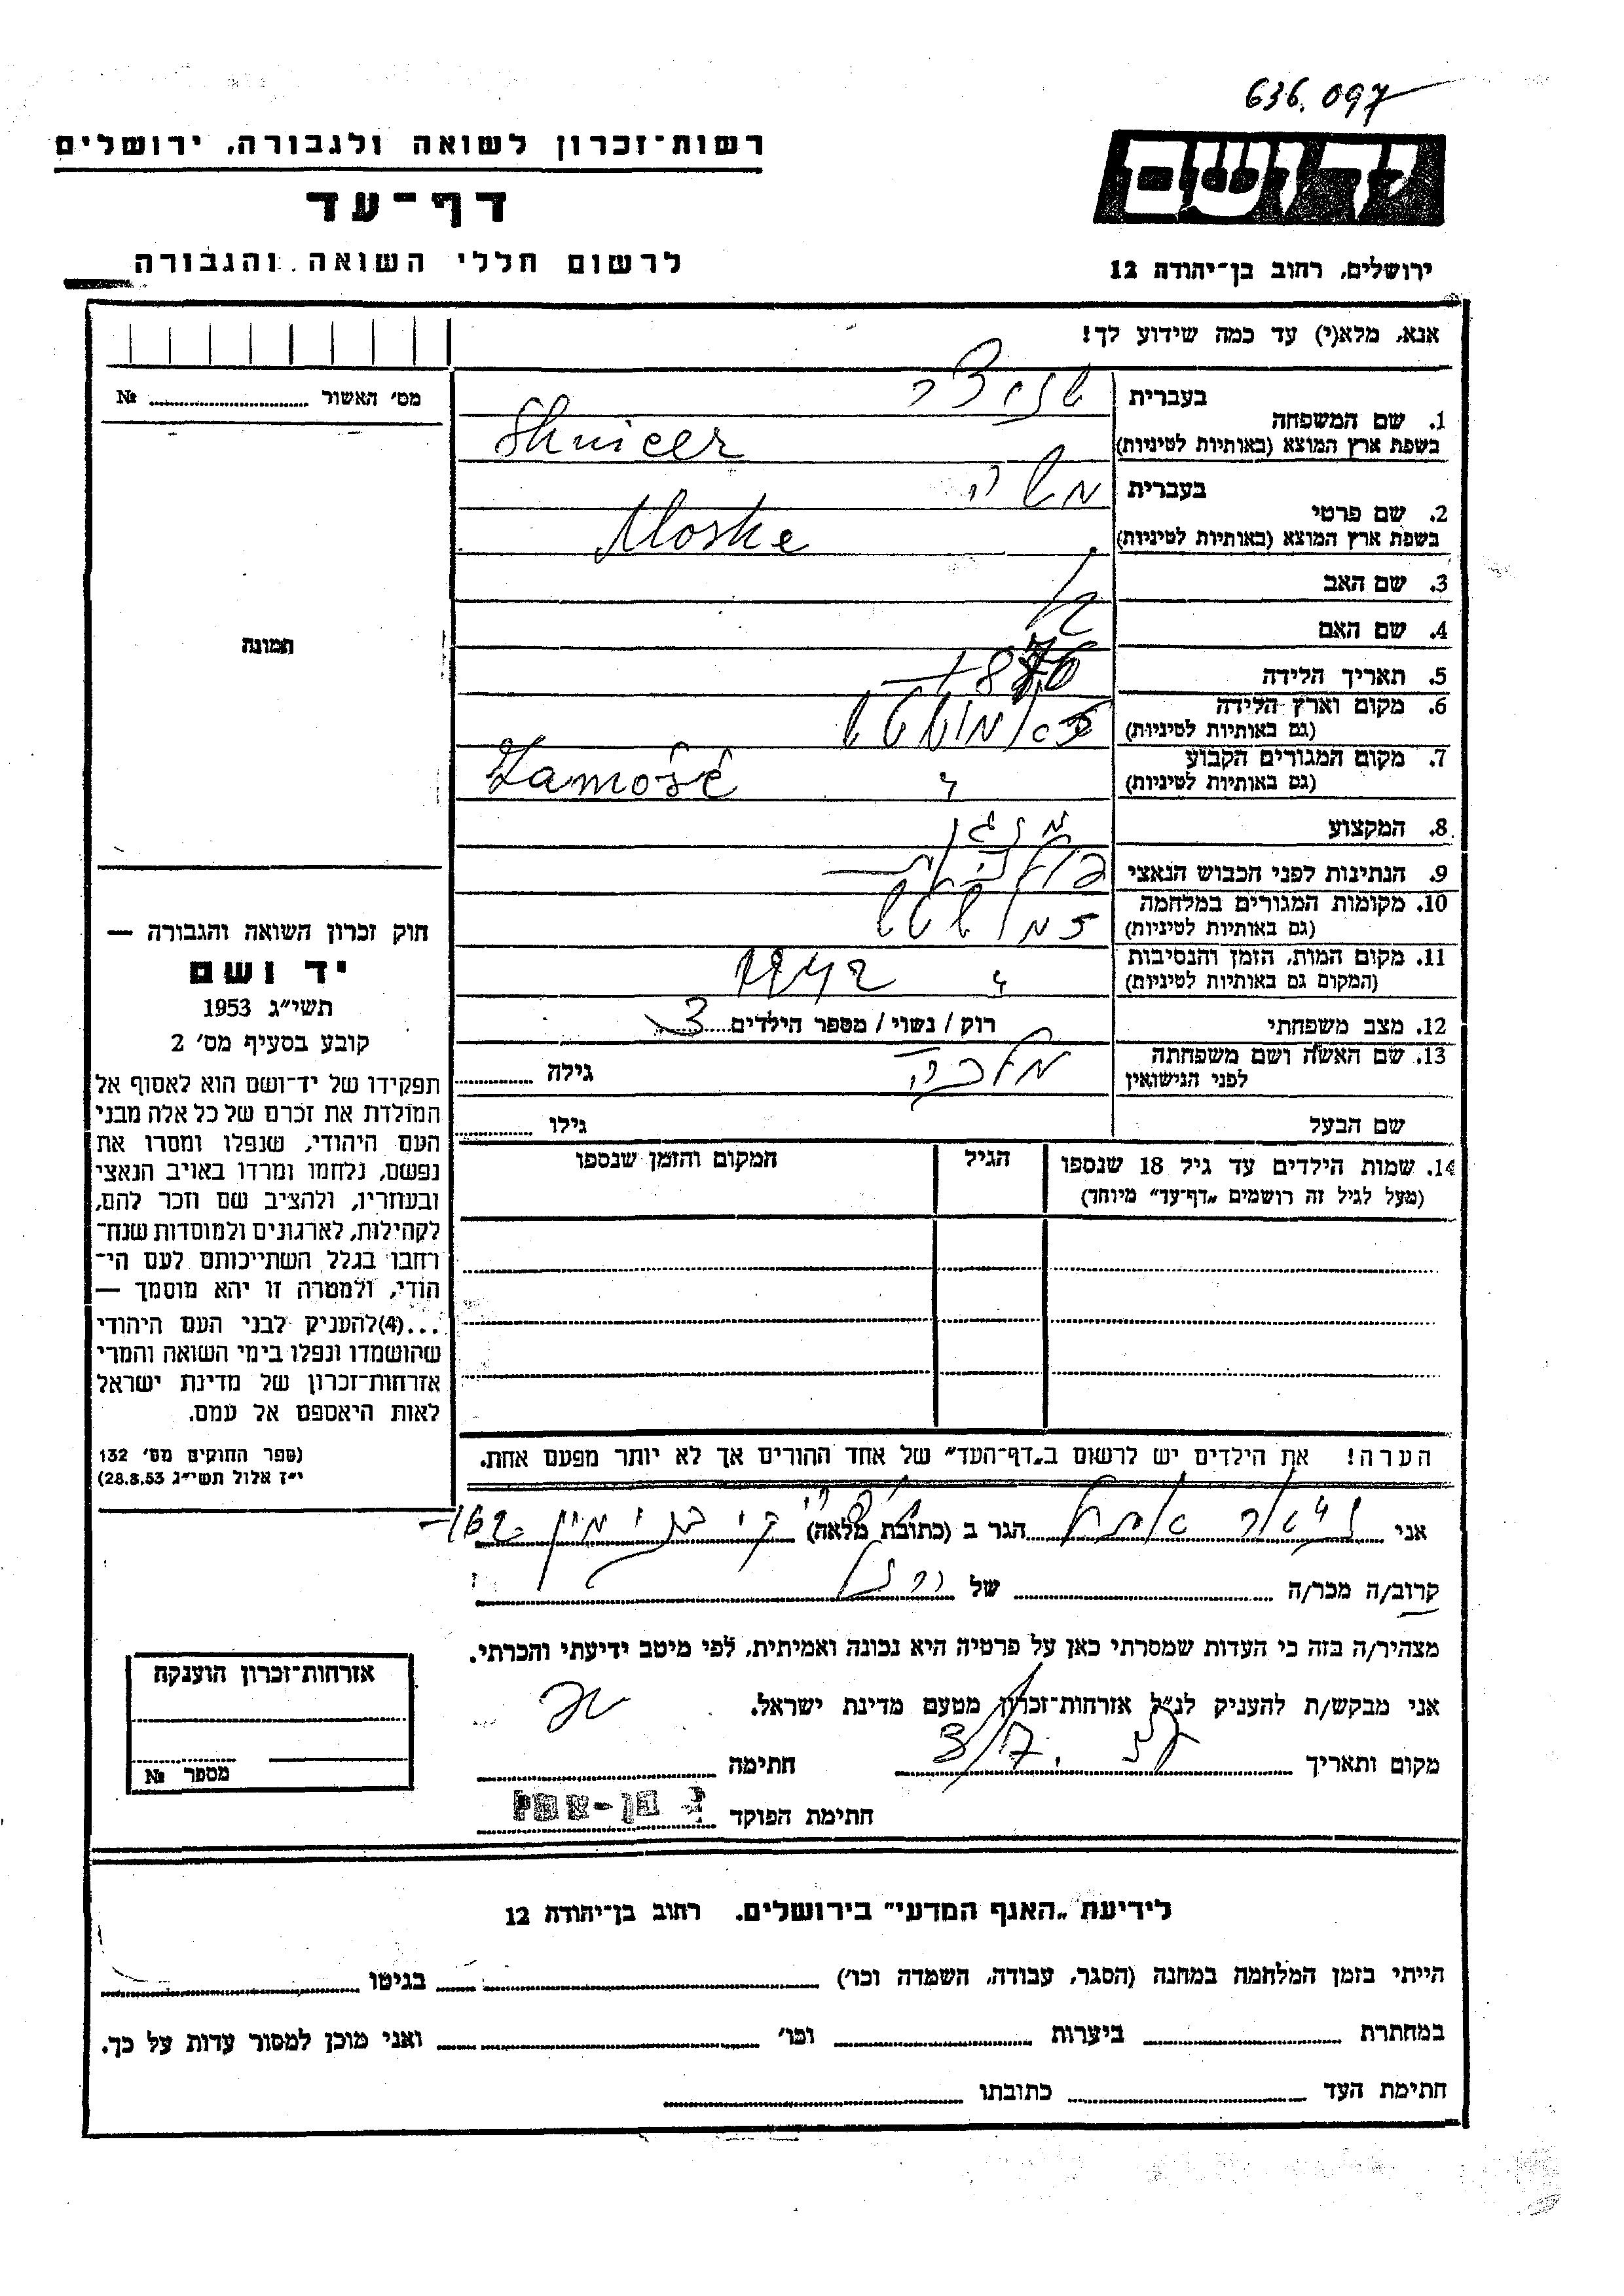 636.097
רשות־זכרון לשואה ולגבורה, ירושלים
יד ושם
דף־עד
לרשום חללי השואה והגבורה
ירושלים, רחוב בן־יהודה 12
אנא, מלא(י) עד כמה שידוע לך!
מס׳ האשור № 
1. שם המשפחה בעברית שניצר
בשפת ארץ המוצא (באותיות לטיניות) Shnicer
2. שם פרטי בעברית משה
בשפת ארץ המוצא (באותיות לטיניות) Moshe
3. שם האב
4. שם האם
תמונה
5. תאריך הלידה
6. מקום וארץ הלידה
(גם באותיות לטיניות)
7. מקום המגורים הקבוע
(גם באותיות לטיניות) Zamość
8. המקצוע
9. הנתינות לפני הכבוש הנאצי
10. מקומות המגורים במלחמה
(גם באותיות לטיניות)
11. מקום המות, הזמן והנסיבות
(המקום גם באותיות לטיניות) " 1942
12. מצב משפחתי רוק / נשוי / מספר הילדים 3
13. שם האשה ושם משפחתה
לפני הנישואין מלכה גילה
שם הבעל גילו
14. שמות הילדים עד גיל 18 שנספו הגיל המקום והזמן שנספו
(מעל לגיל זה רושמים „דף־עד״ מיוחד)
חוק זכרון השואה והגבורה —
יד ושם
תשי״ג 1953
קובע בסעיף מס׳ 2
תפקידו של יד־ושם הוא לאסוף אל
המולדת את זכרם של כל אלה מבני
העם היהודי, שנפלו ומסרו את
נפשם, נלחמו ומרדו באויב הנאצי
ובעוזריו, ולהציב שם וזכר להם,
לקהילות, לארגונים ולמוסדות שנח־
רחבו בגלל השתייכותם לעם הי־
הודי, ולמטרה זו יהא מוסמך —
...(4)להעניק לבני העם היהודי
שהושמדו ונפלו בימי השואה והמרי
אזרחות־זכרון של מדינת ישראל
לאות היאספם אל עמם.
(ספר החוקים מס׳ 132
י״ז אלול תשי״ג 28.8.53)
הערה! את הילדים יש לרשום ב„דף־העד״ של אחד ההורים אך לא יותר מפעם אחת.
אני הגר ב (כתובת מלאה)
קרוב/ה מכר/ה של
מצהיר/ה בזה כי העדות שמסרתי כאן על פרטיה היא נכונה ואמיתית, לפי מיטב ידיעתי והכרתי.
אני מבקש/ת להעניק לנ״ל אזרחות־זכרון מטעם מדינת ישראל.
מקום ותאריך חתימה
חתימת הפוקד
אזרחות־זכרון הוענקה
מספר №
לידיעת „האגף המדעי״ בירושלים, רחוב בן־יהודה 12
הייתי בזמן המלחמה במחנה (הסגר, עבודה, השמדה וכו׳) בגיטו
במחתרת ביערות וכו׳ ואני מוכן למסור עדות על כך.
חתימת העד כתובתו